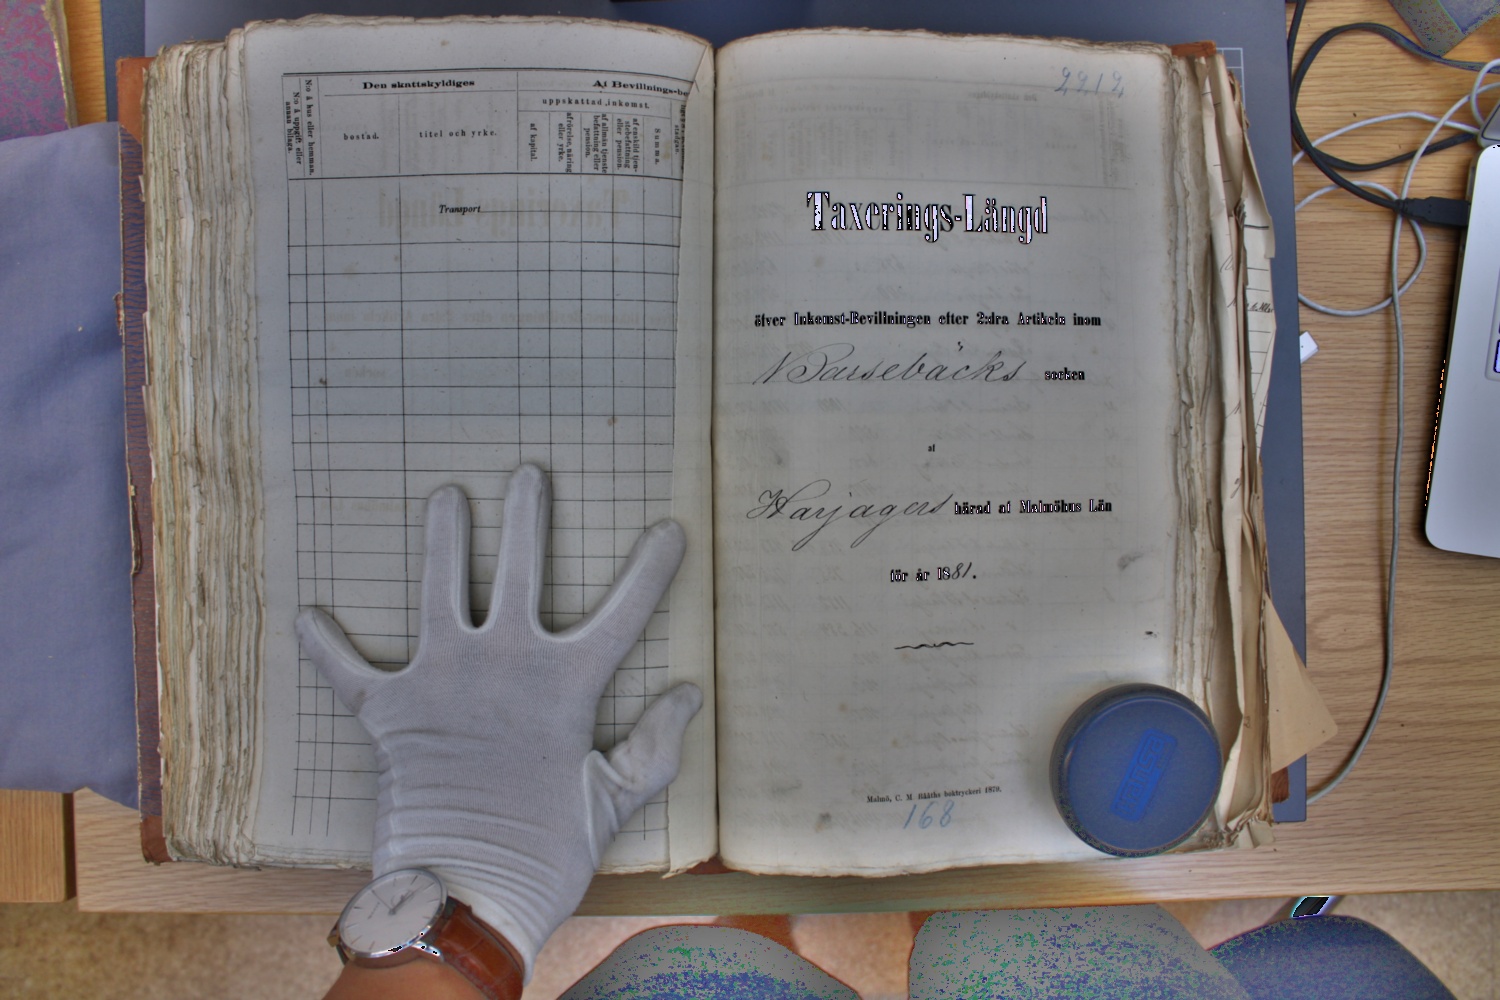 Den skattskyldiges
Af Bevillnings-be
N:o å uppgift eller annan bilaga.
N:o å hus eller hemman.
bostad.
titel och yrke.
uppskattad inkomst.
af kapital.
af rörelse, näring eller yrke.
af allmän tjenstebefattning eller pension.
af enskild tjenstebefattning eller pension.
Summa.
Transport
2212
Taxerings-Längd
öfver Inkomst-Bevillningen efter 2:dra Artikeln inom
Barsebäcks socken
af
Harjagers härad af Malmöhus Län
för år 1881.
Malmö, C. M. Bååths boktryckeri 1879.
168